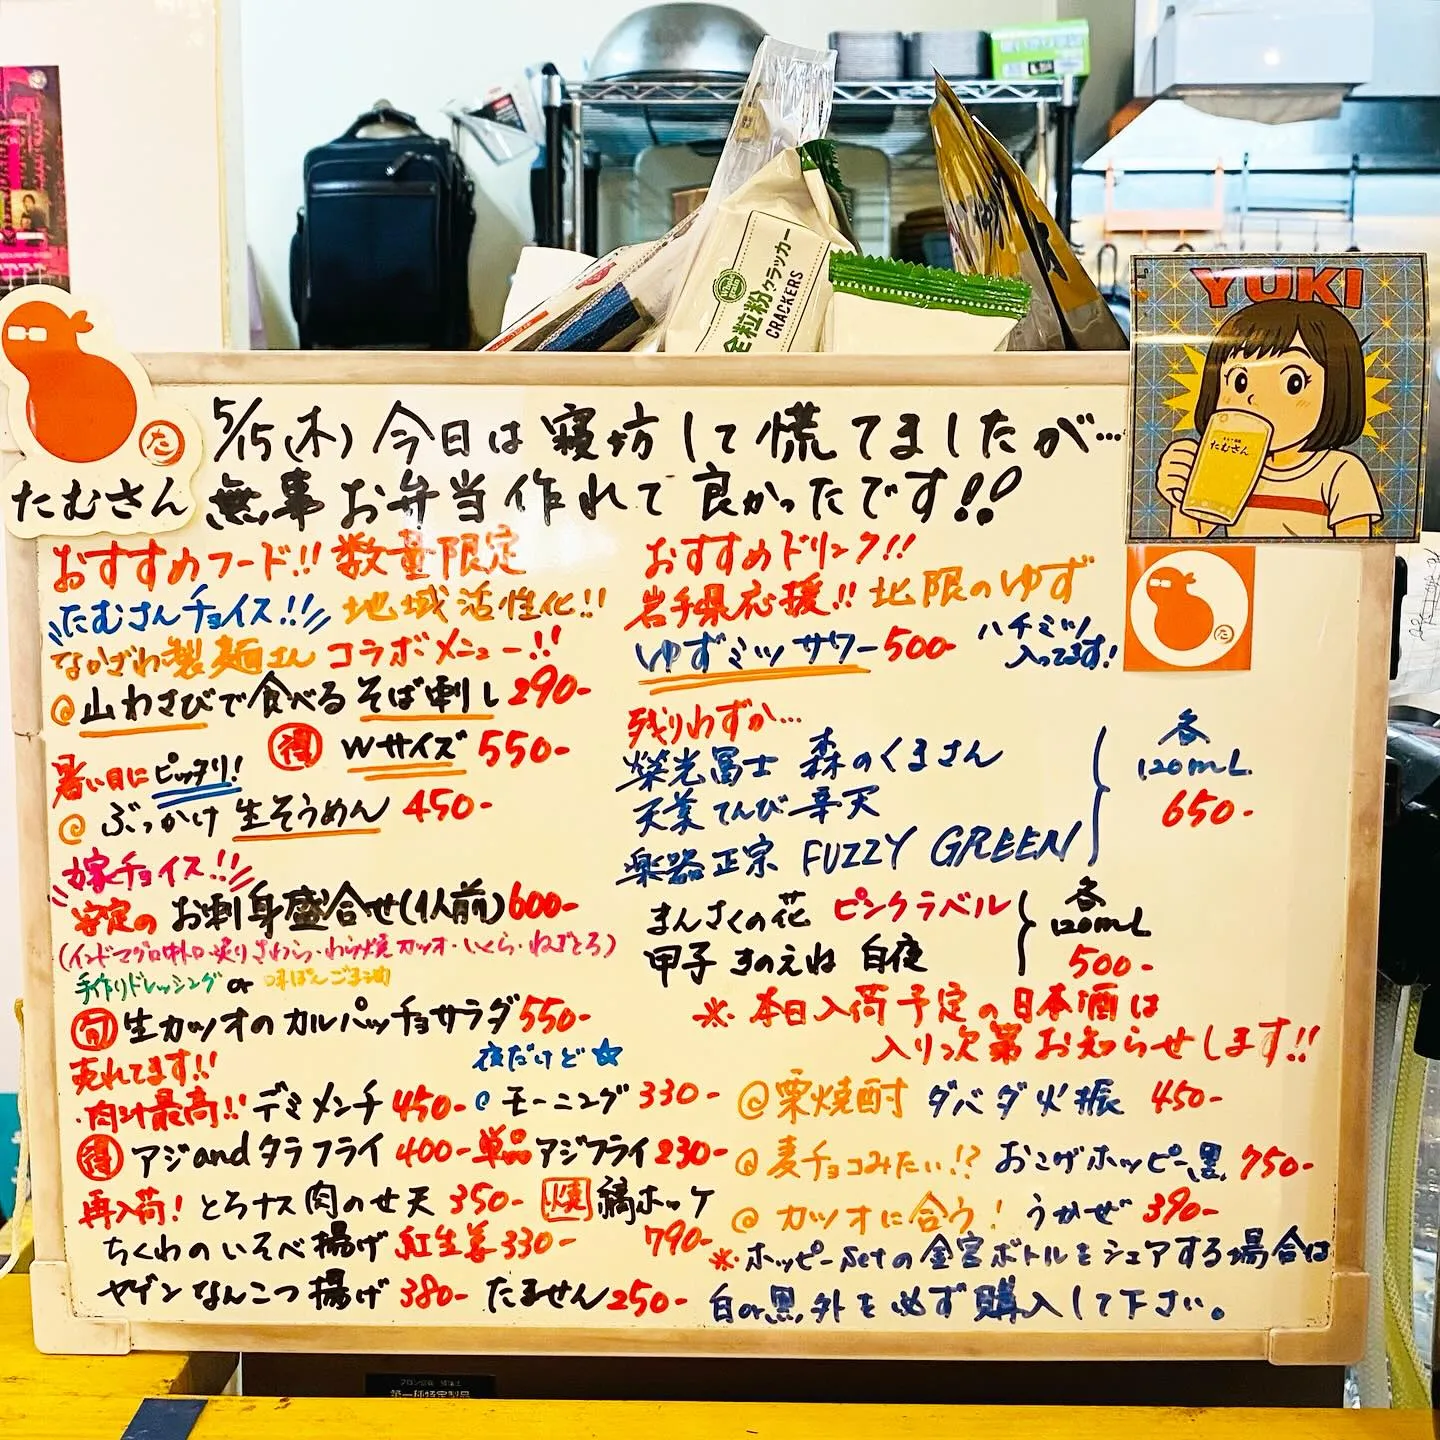 YUKI
全粒粉クラッカー
CRACKERS
たむさん
た
たむさん
5/15(木) 今日は寝坊して慌てましたが…
無事お弁当作れて良かったです!!
おすすめフード!! 数量限定
たむさんチョイス!! 地域活性化!!
なかざわ製麺さん コラボメニュー!!
@山わさびで食べるそば刺し 290-
得 Wサイズ 550-
暑い日にピッタリ!
@ ぶっかけ生そうめん 450-
嫁チョイス!!
安定の お刺身盛合せ(1人前) 600-
(インドマグロ中トロ・炙りさわら・わら焼カツオ・いくら・ねぎとろ)
手作りドレッシング or 味ぽんごま油
旬 生カツオのカルパッチョサラダ 550-
売れてます!! 夜だけど☆
・肉汁最高!! デミメンチ 450- @モーニング 330-
得 アジandタラフライ 400- 単品アジフライ 230-
再入荷! とろナス肉のせ天 350- 焼 縞ホッケ
790-
ちくわのいそべ揚げ 紅生姜 330-
ヤゲンなんこつ揚げ 380- たません 250-
おすすめドリンク!!
岩手県応援!! 北限のゆず
ゆずミツサワー 500- ハチミツ
入ってます!
残りわずか…
栄光冨士 森のくまさん
天美 てんび 辛天
楽器正宗 FUZZY GREEN
各
120mL
650-
まんさくの花 ピンクラベル
甲子 きのえね 白夜
各
120mL
500-
※本日入荷予定の日本酒は
入り次第お知らせします!!
@栗焼酎 ダバダ火振 450-
@麦チョコみたい!? おこげホッピー黒 750-
@カツオに合う! うかぜ 390-
※ホッピーsetの金宮ボトルをシェアする場合は
白or黒 外を必ず購入して下さい。
た
第一種特定製品